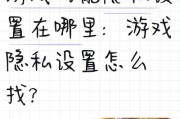 置在哪里：游戏
隐私设置怎么
找？